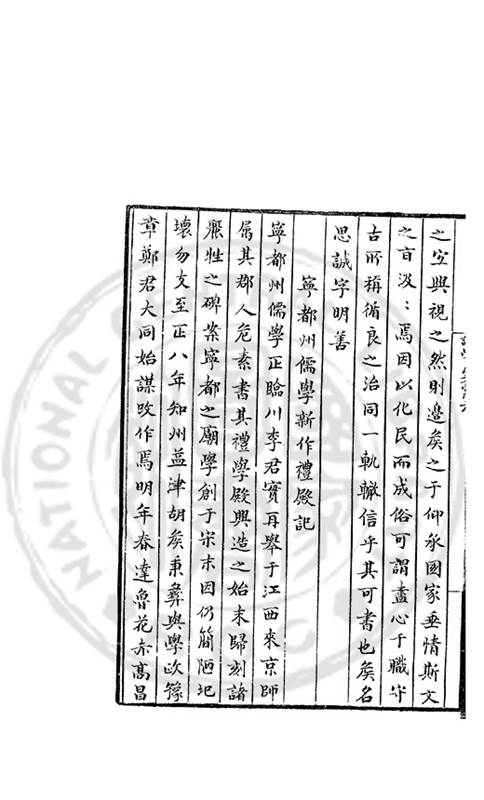 之空與視之然則邉矦之于仰承國家垂情斯文
之盲汲：焉因以化民而成俗可謂盡心于職守
古所稱循良之治同一軌轍信乎其可書也矣名
思誠字明善
寧都州儒學新作禮殿記
寧都州儒學正臨川李君寳耳舉于江西來京師
属其郡人危素書其禮學殿興造之始末歸刻諸
麗牲之碑案寧都之廟學創于宋末因仍簡陋圮
壞勿支至正八年知州益津胡矦秉彝與學政豫
章鄭君大同始謀改作焉明年春達魯花赤高昌
NATIONAL